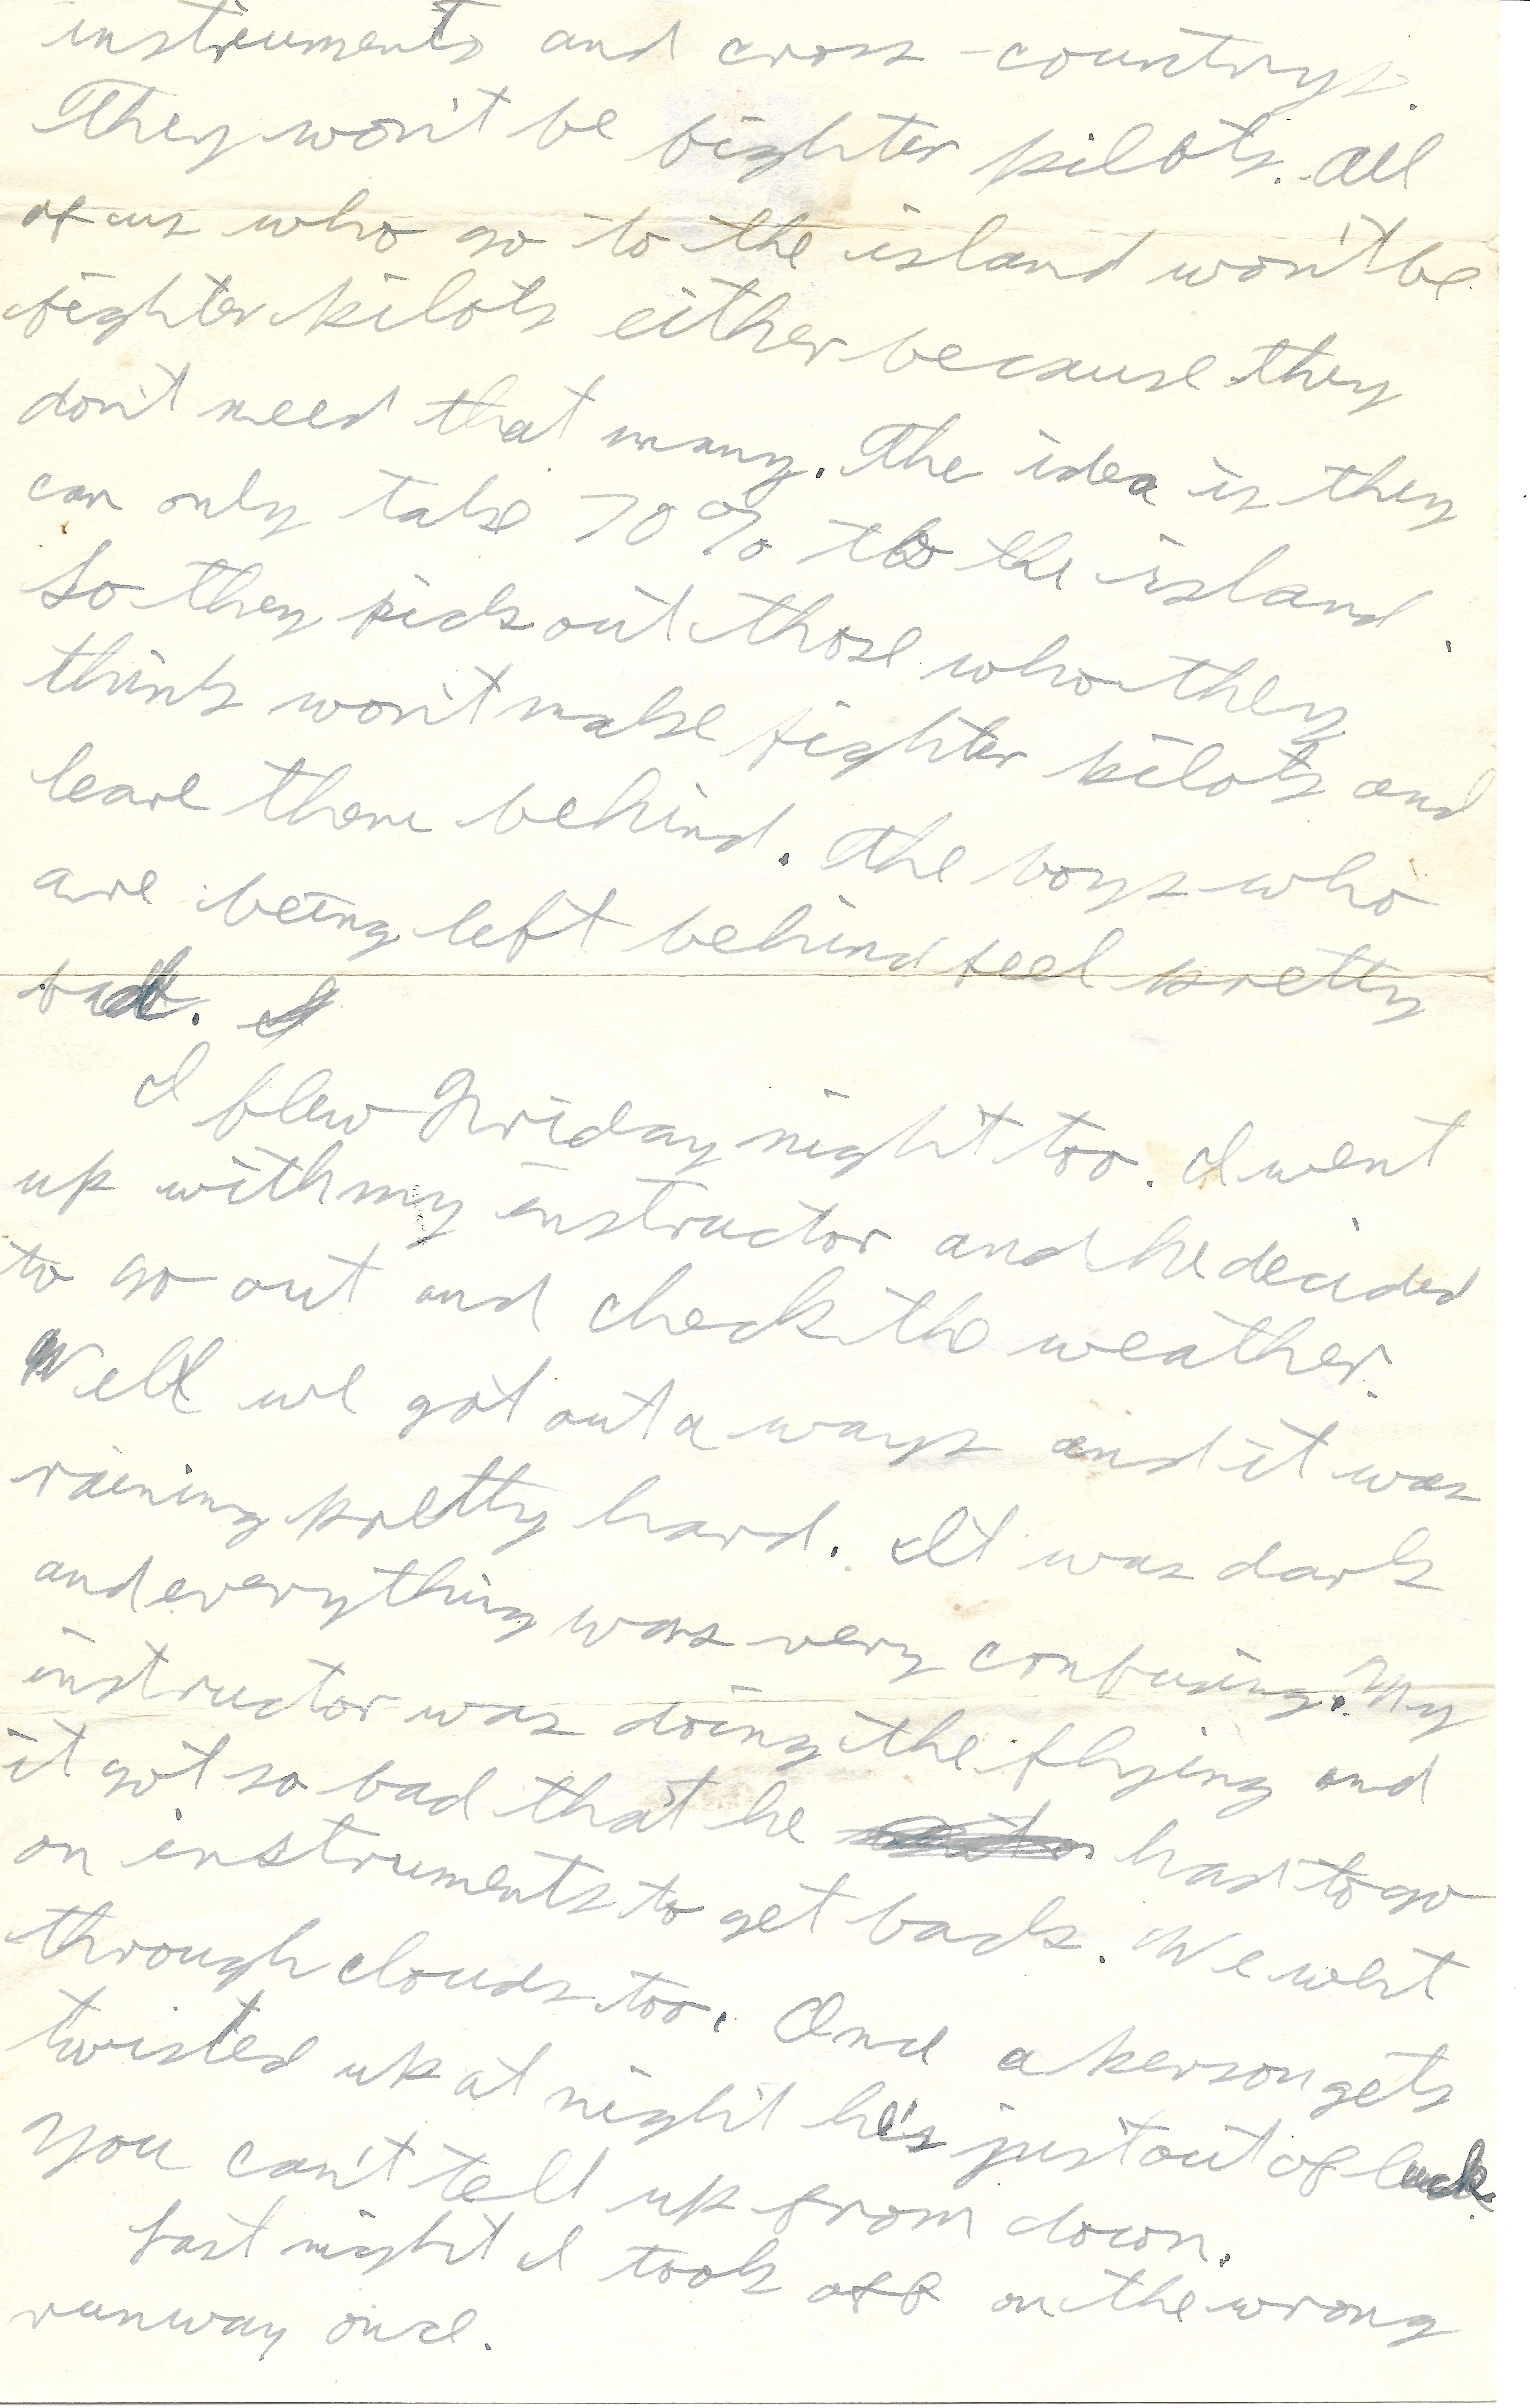 instruments and cross-countrys.
They won't be fighter pilots. All
of us who go to the island won't be
fighter pilots either because they
don't need that many. The idea is they
can only take 70% to the island.
So they pick out those who they
think won't make fighter pilots and
leave them behind. The boys who
are being left behind feel pretty
bad.
I flew Friday night too. I went
up with my instructor and he decided
to go out and check the weather.
Well we got out a ways and it was
raining pretty hard. It was dark
and everything was very confusing. My
instructor was doing the flying and
it got so bad that he had to go
on instruments to get back. We went
through clouds too. Once a person gets
twisted up at night he's just out of luck.
You can't tell up from down.
Last night I took off on the wrong
runway once.